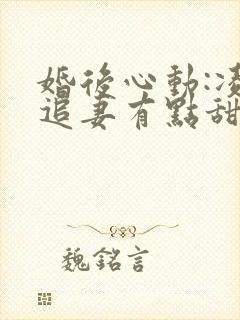 婚後心動:凌
追妻有點甜
魏銘言